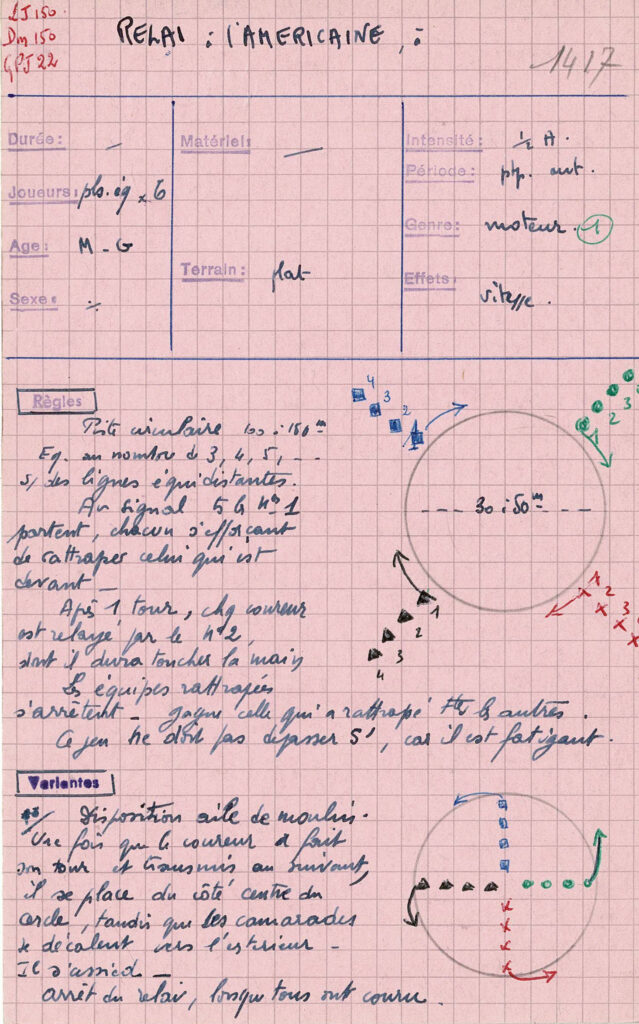 LJ 150
Dm 150
GPJ 22
RELAI : l'AMERICAINE .-
1417
Durée : —
Joueurs : pls. éq x 6
Age : M - G
Sexe :
Matériel : —
Terrain : plat
Intensité : ½ A.
Période : ptp. aut.
Genre : moteur. 1
Effets : vitesse.
Règles
Piste circulaire 100 à 150 m
Eq. au nombre de 3, 4, 5, ...
s/ des lignes équidistantes.
Au signal ts les nos 1
partent, chacun s'efforçant
de rattraper celui qui est
devant —
Après 1 tour, chq coureur
est relayé par le n° 2,
dont il devra toucher la main
Les équipes rattrapées
s'arrêtent — gagne celle qui a rattrapé ttes les autres.
Ce jeu ne doit pas dépasser 5', car il est fatigant.
4 3 2 1
1 2 3
30 à 50 m
1 2 3 4
1 2 3
Variantes
Disposition aile de moulin.
Une fois que le coureur a fait
son tour et transmis au suivant,
il se place du côté centre du
cercle, tandis que les camarades
se décalent vers l'extérieur —
Il s'assied —
arrêt du relai, lorsque tous ont couru.